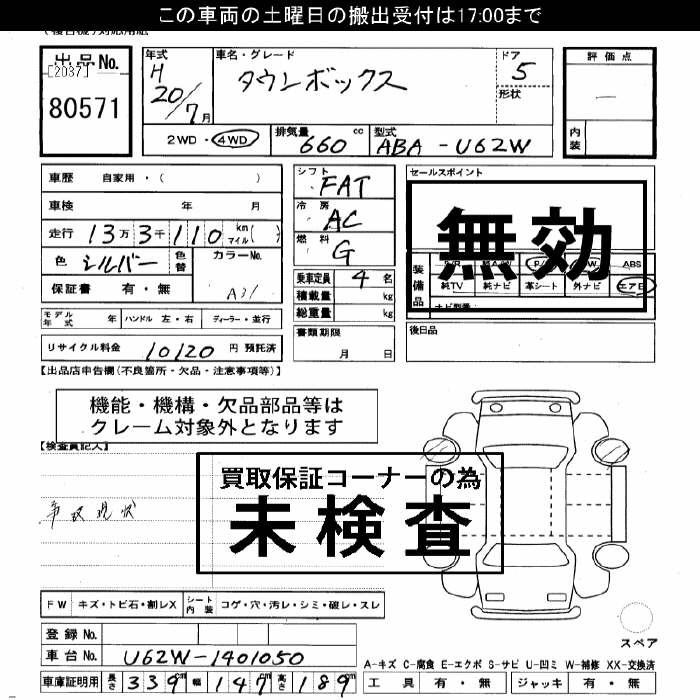 この車両の土曜日の搬出受付は17:00まで
出品No.
[2037]
80571
年式
H 20/7月
車名・グレード
タウンボックス
ドア
5
形状
評価点
内装
2WD・4WD
排気量
660 cc
型式
ABA-U62W
車歴 自家用・( )
車検 年 月
走行 13万3千110 km マイル( )
色 シルバー
色替
カラーNo.
A31
保証書 有・無
シフト
FAT
冷房
AC
燃料
G
乗車定員 4名
積載量 kg
総重量 kg
セールスポイント
無効
装備品
ABS
純TV
純ナビ
革シート
外ナビ
エアB
モデル年式 年
ハンドル 左・右
ディーラー・並行
書類期限
月 日
後日品
リサイクル料金 10120 円 預託済
【出品店申告欄(不良箇所・欠品・注意事項等)】
機能・機構・欠品部品等は
クレーム対象外となります
【検査員記入】
買取保証コーナーの為
未検査
事故現状
FW
キズ・トビ石・割レX
シート内装
コゲ・穴・汚レ・シミ・破レ・スレ
スペア
登録No.
車台No.
U62W-1401050
A-キズ C-腐食 E-エクボ S-サビ U-凹ミ W-補修 XX-交換済
車庫証明用
長さ 339m
幅 147m
高さ 189m
工具 有・無
ジャッキ 有・無